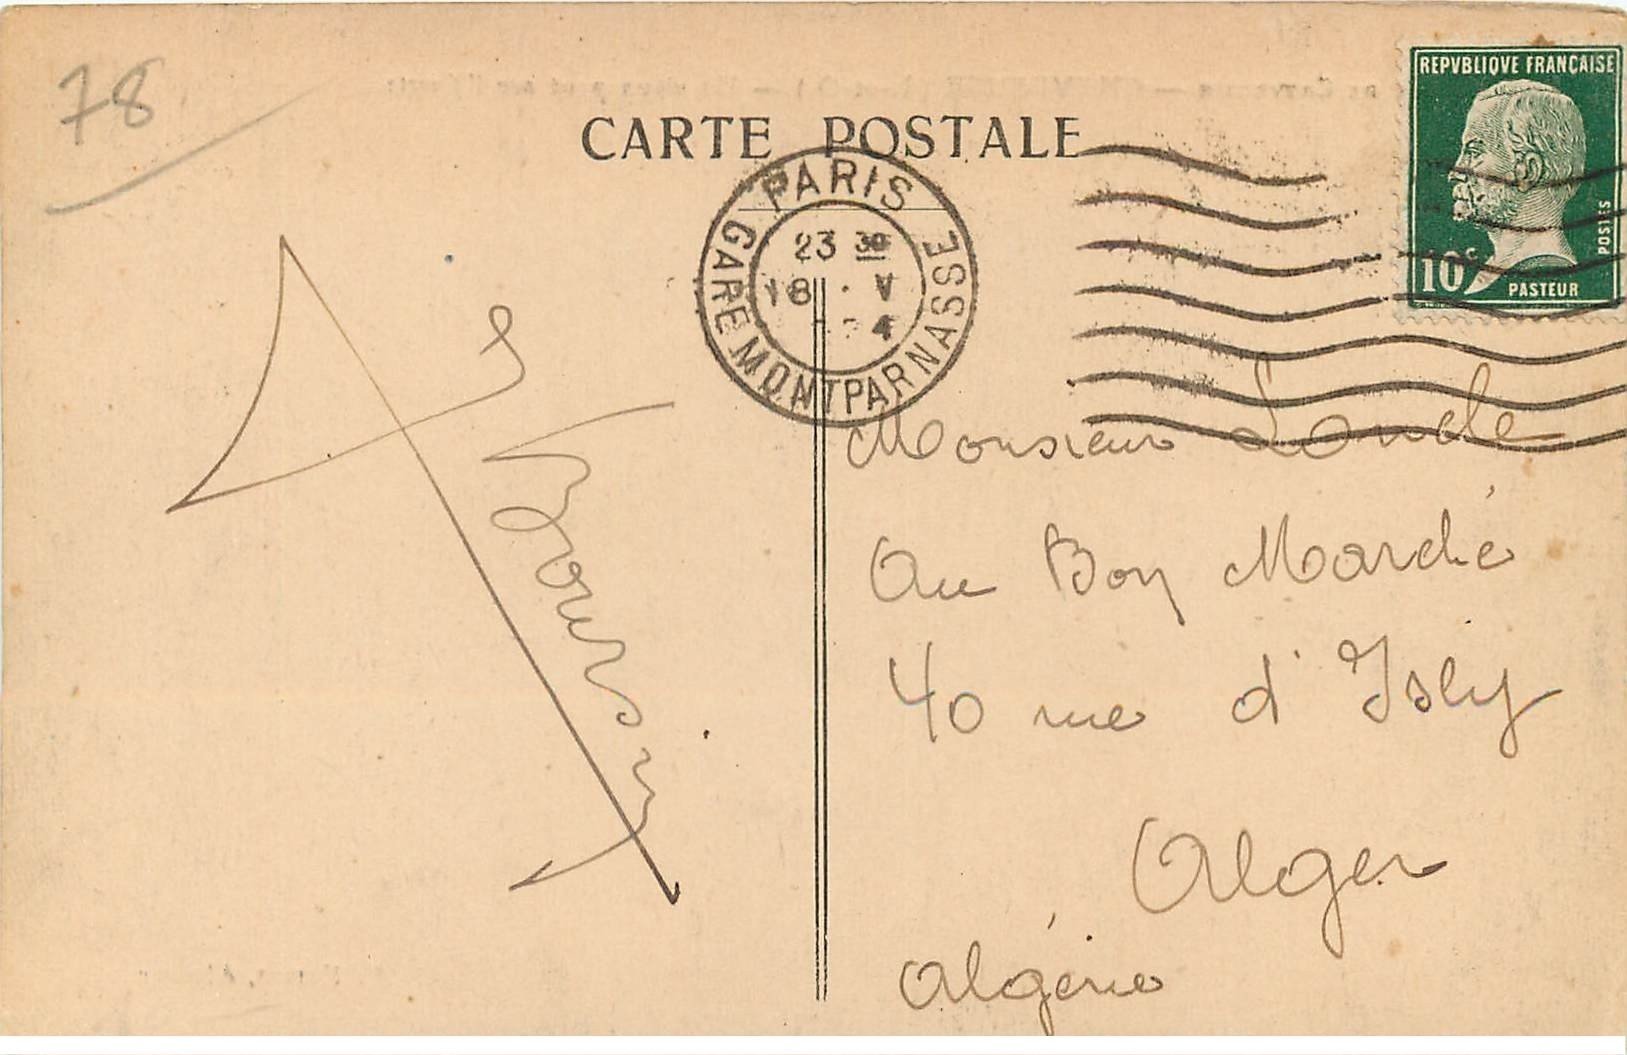 78
CARTE POSTALE
REPVBLIQVE FRANÇAISE
POSTES
10c
PASTEUR
PARIS
23 30
18 · V
4
GARE MONTPARNASSE
Monsieur
Au Bon Marché
40 rue d'Isly
Alger
Algérie